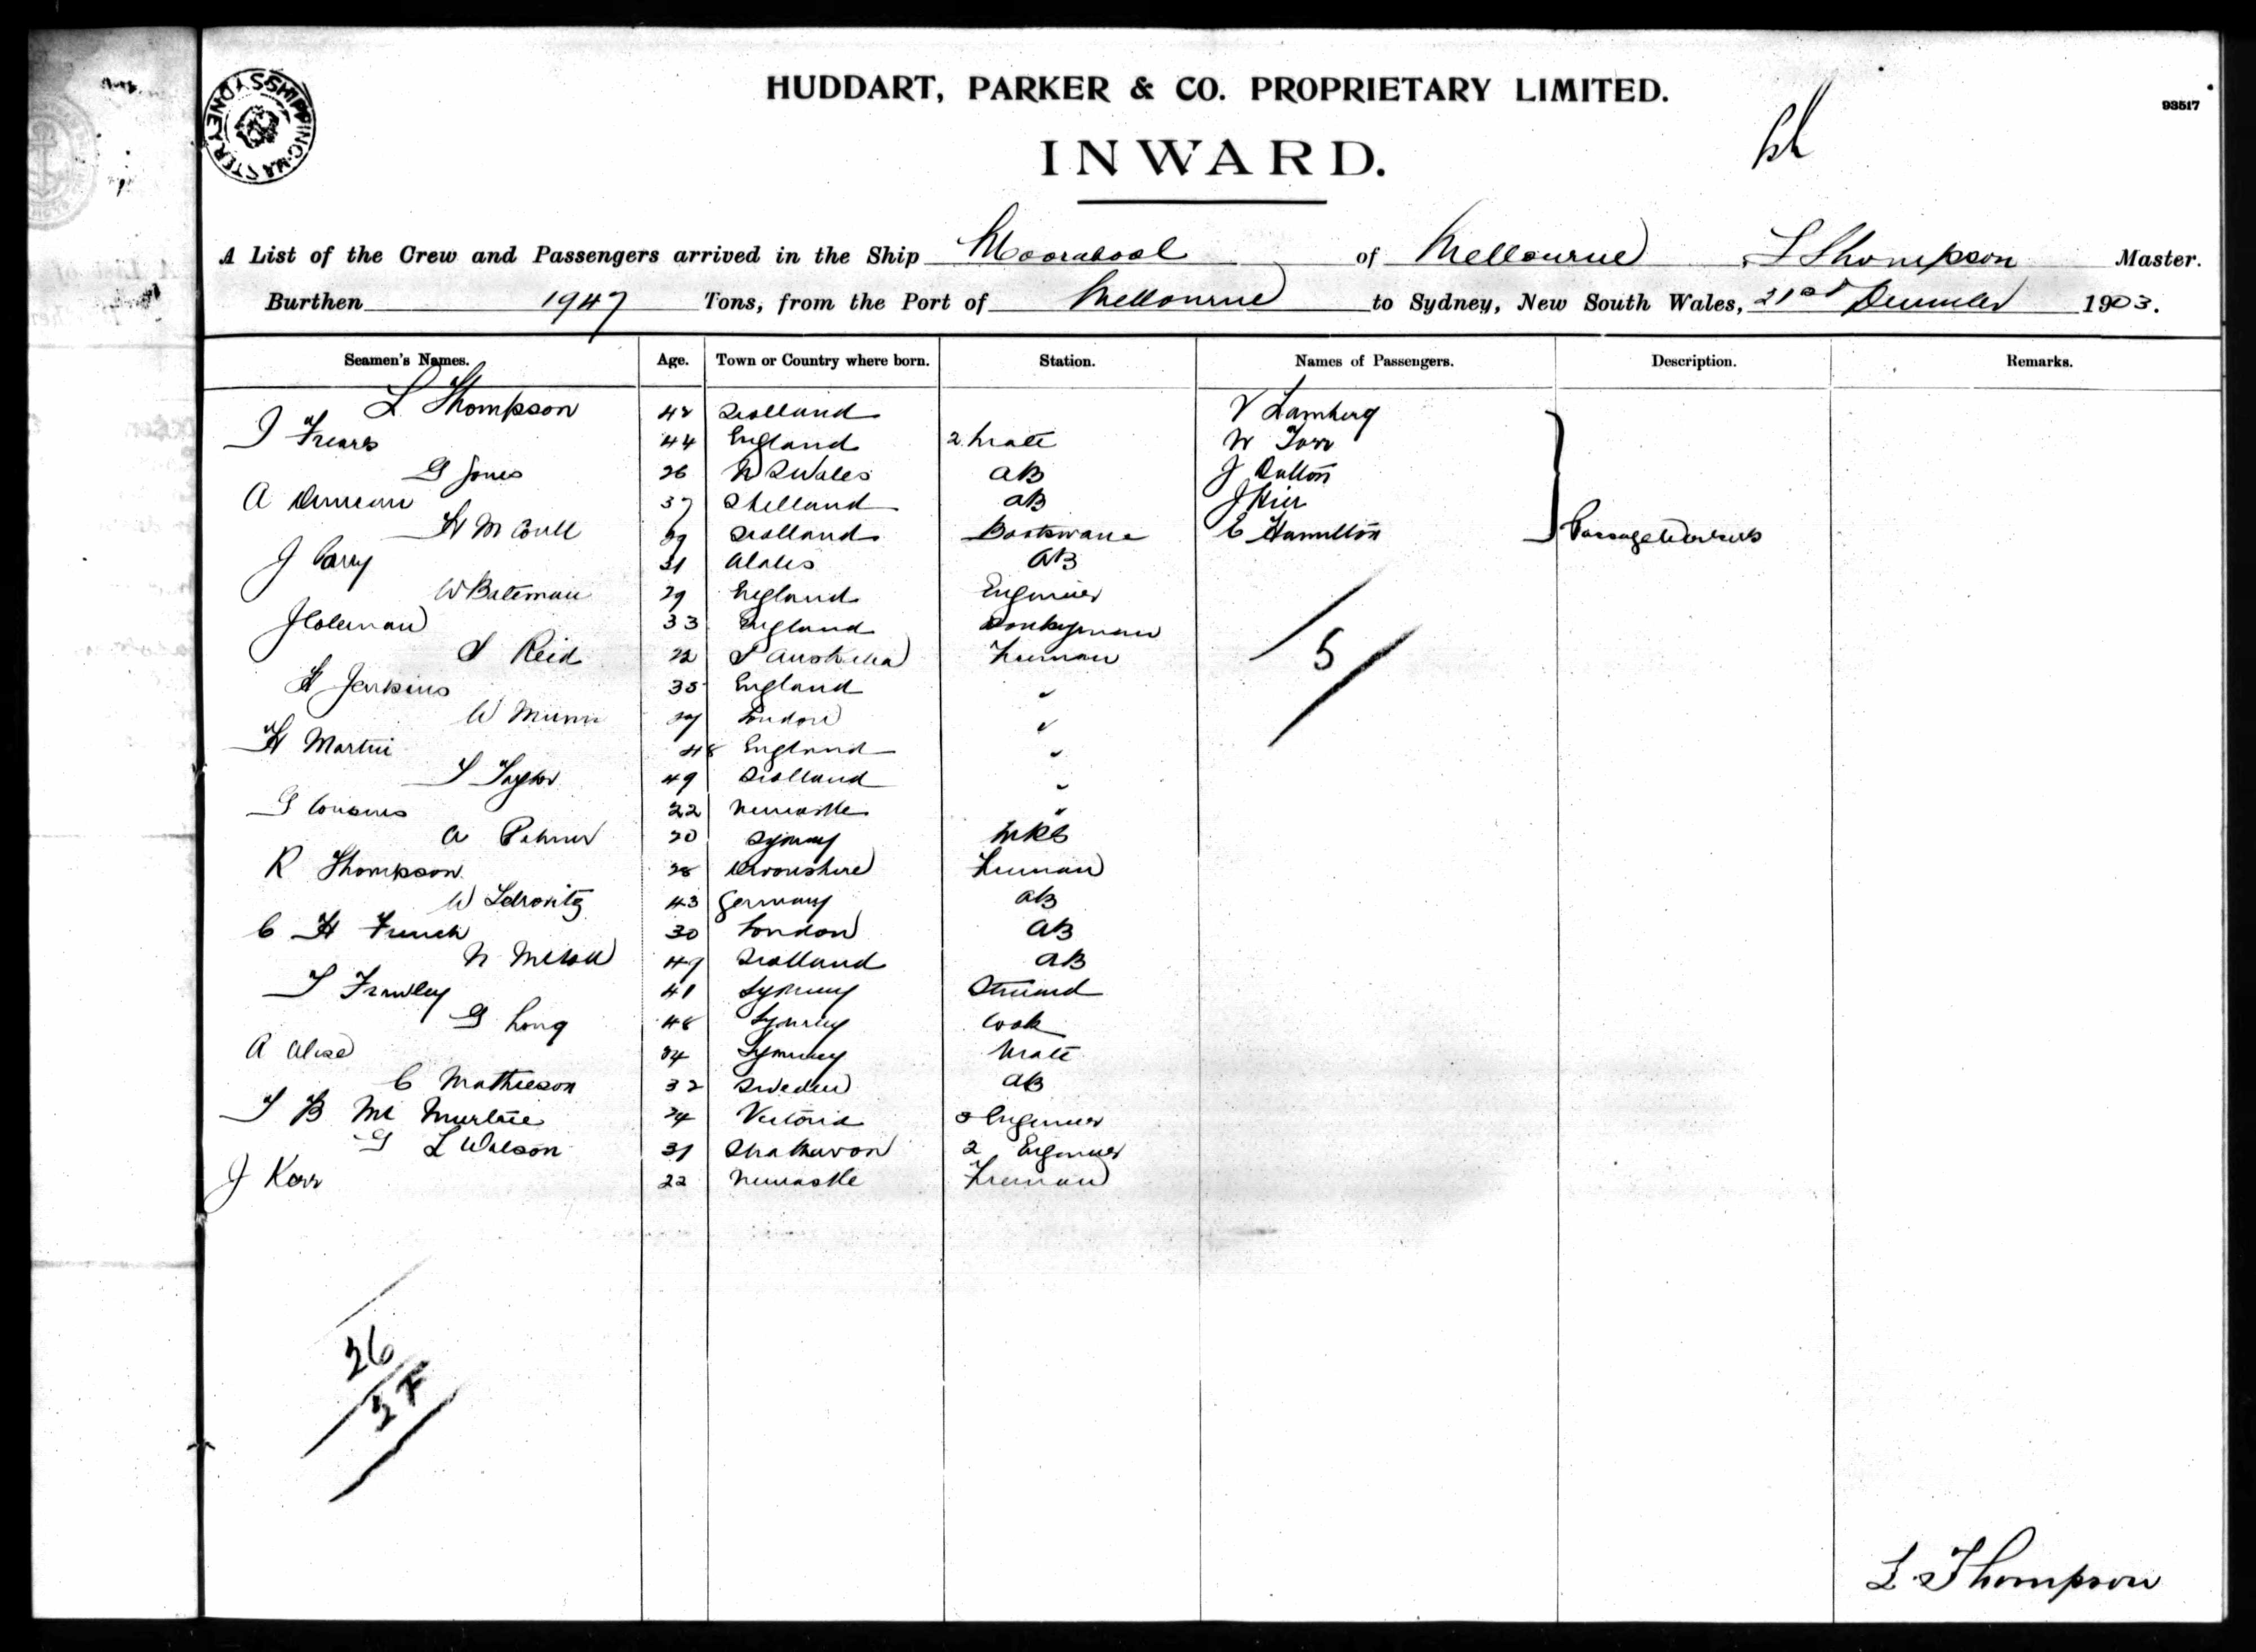 SHIPPING MASTER SYDNEY
HUDDART, PARKER & CO. PROPRIETARY LIMITED.
93517
INWARD.
A List of the Crew and Passengers arrived in the Ship Moorabool of Melbourne, L Thompson Master.
Burthen 1947 Tons, from the Port of Melbourne to Sydney, New South Wales, 21st December 1903.
Seamen's Names. Age. Town or Country where born. Station. Names of Passengers. Description. Remarks.
L Thompson 42 Scotland V Lamberg
J Frears 44 England 2 Mate W Torr
G Jones 26 N S Wales AB J Dalton
A Duncan 37 Shetland AB J Hier
H McCoull 39 Scotland Boatswain C Hamilton Passage Workers
J Parry 31 Wales AB
W Bateman 29 England Engineer
J Coleman 33 England Donkeyman
S Reid 22 S Australia Fireman 5
H Jenkins 35 England "
W Munn 37 London "
H Martin 48 England "
T Taylor 49 Scotland "
G Cousins 22 Newcastle "
A Palmer 20 Sydney
R Thompson 28 Devonshire Fireman
W 43 Germany AB
C H French 30 London AB
N 49 Scotland AB
T Frawley 41 Sydney Steward
G Long 48 Sydney Cook
A 34 Sydney Mate
C Mathieson 32 Sweden AB
T B Mc Murtrie 24 Victoria 3 Engineer
G L Wilson 31 Strathavon 2 Engineer
J Kerr 22 Newcastle Fireman
26
L Thompson